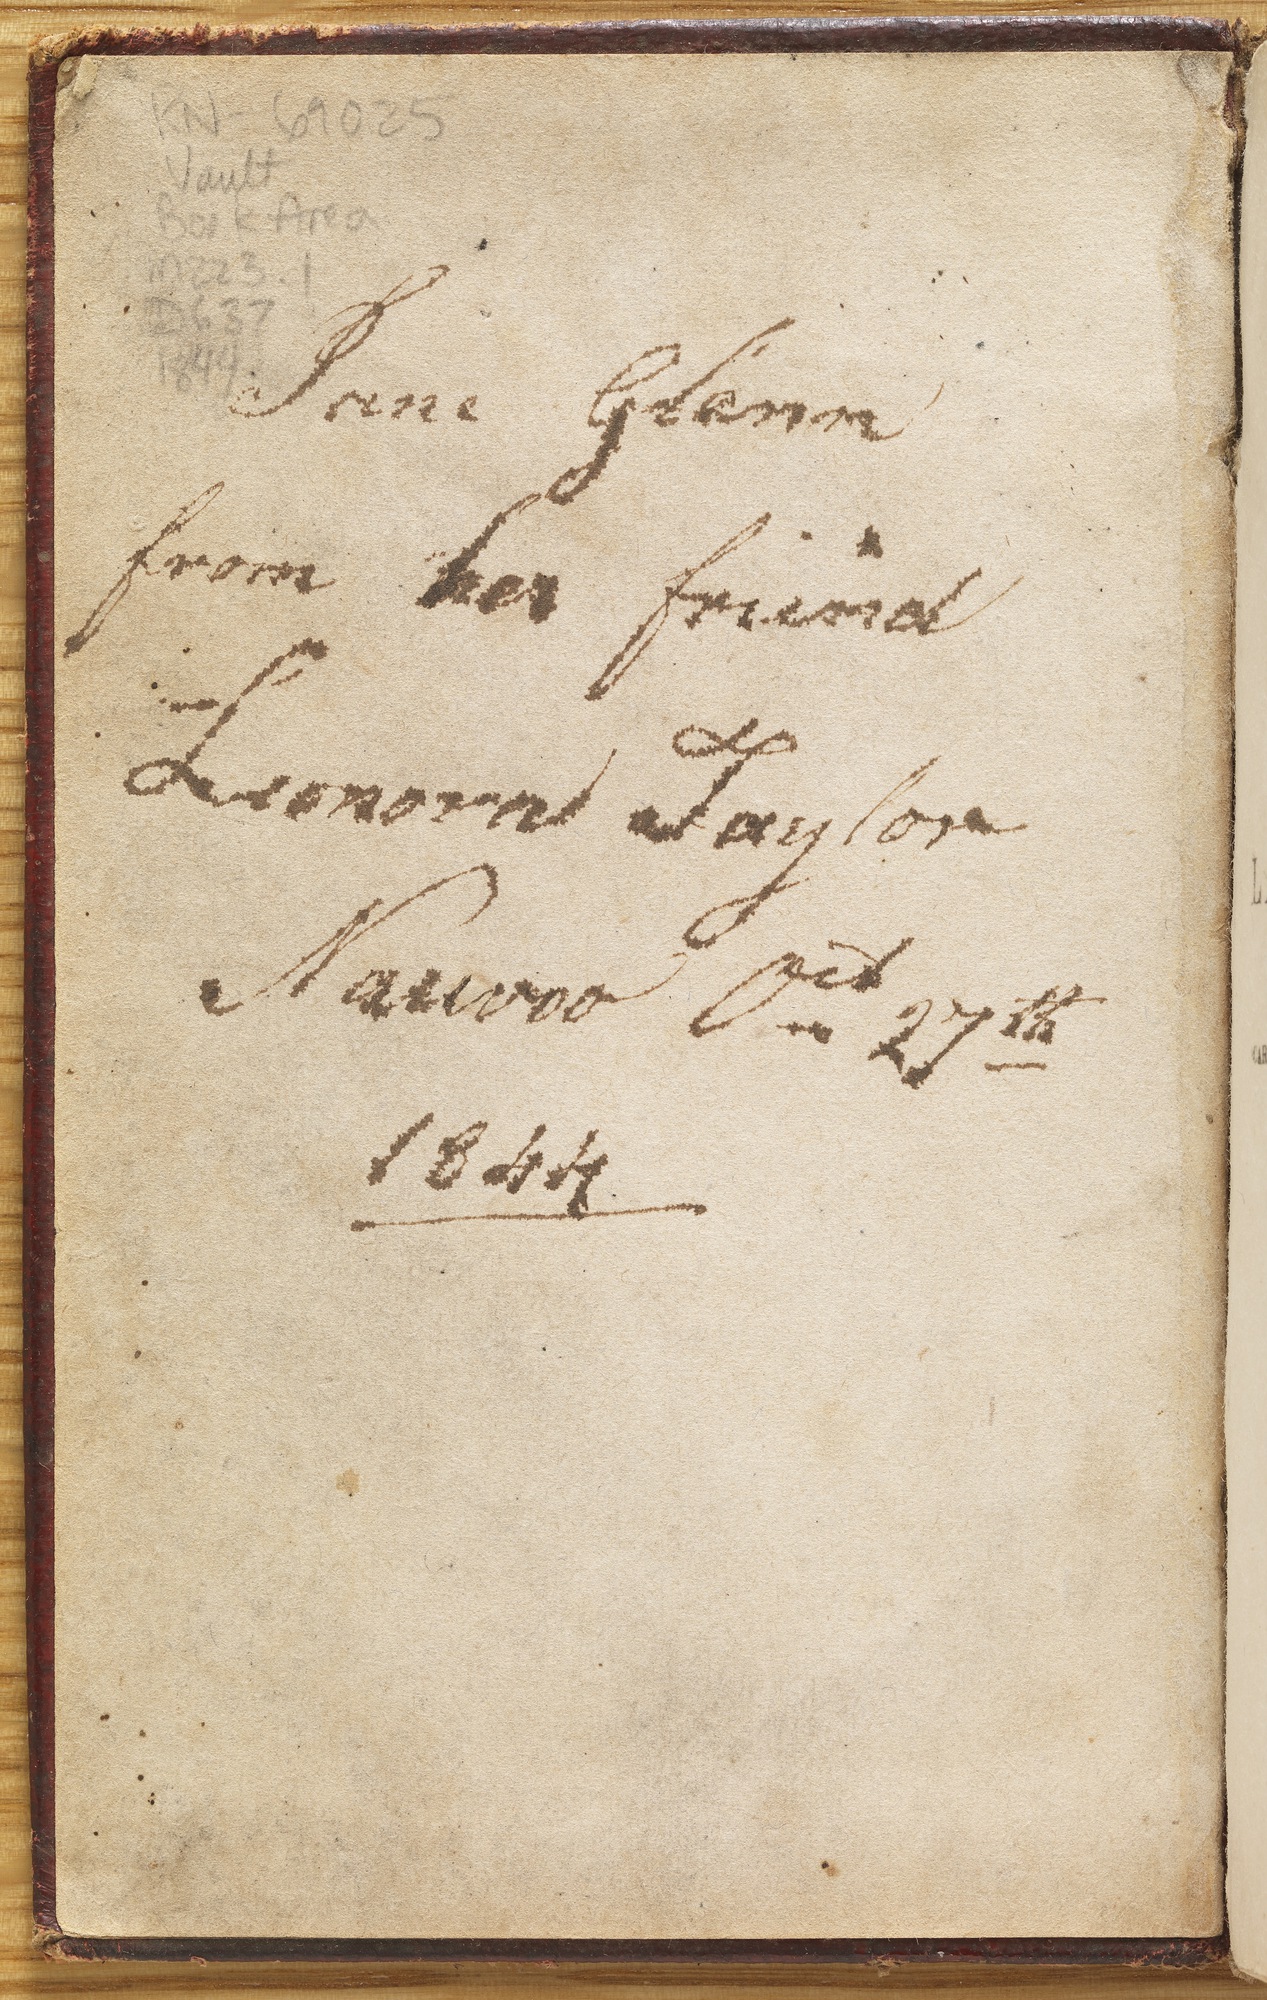 RN- 69025
Vault
Book Area
M223.1
D637
1844
Jane Glenn
from her friend
Leonora Taylor
Nauvoo Oct 27th
1844